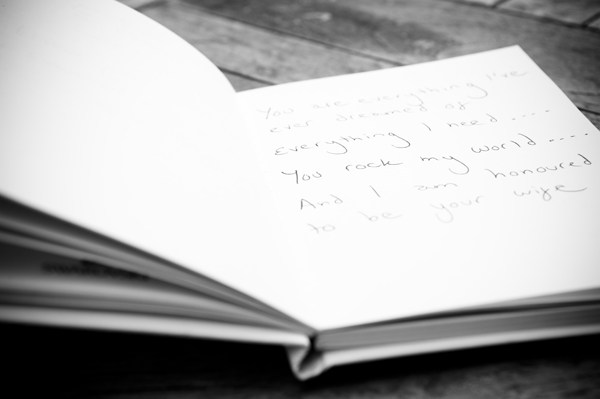 You are everything I've
ever dreamed of
everything I need ....
You rock my world ....
And I am honoured
to be your wife